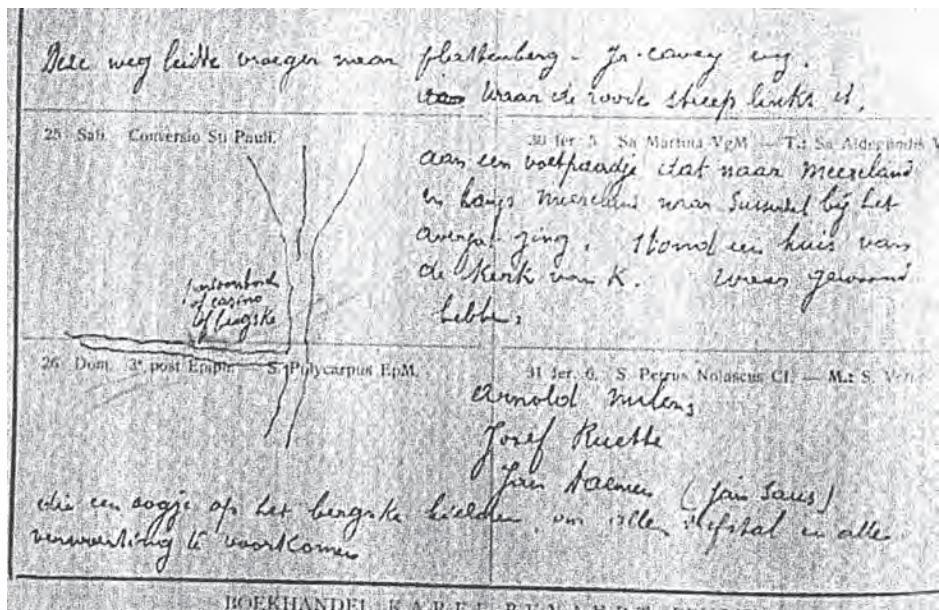 Deze weg leidde vroeger naar plattenberg - Jr. cavey weg.
waar de roode streep links is,
25 Sab. Conversio Sti Pauli.
30 fer. 5. Sa Martina VgM — T.: Sa Aldegundis V
aan een voetpaadje dat naar Meereland
en langs Meereland naar Sussel bij het
ging. Stond een huis van
de kerk van K. waar gewoond
hebben:
of casino
of bergske
26 Dom. 3a post Epiph. S. Polycarpus EpM.
31 fer. 6. S. Petrus Nolascus Cf. — M.: S.
Arnold Nulens
Josef Ruette
Jan Daemen (Jan Saus)
die een oogje op het bergske hielden, om allen diefstal en alle
verwoesting te voorkomen
BOEKHANDEL KAREL BEYAERT